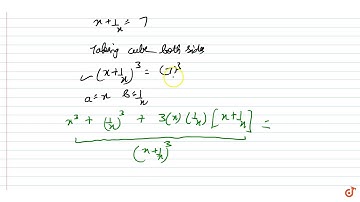 x + 1/x = 7
Taking cube both side
✓ (x + 1/x)³ = (7)³
a = x b = 1/x
x³ + (1/x)³ + 3(x)(1/x)[x + 1/x] =
(x + 1/x)³
doubtnut